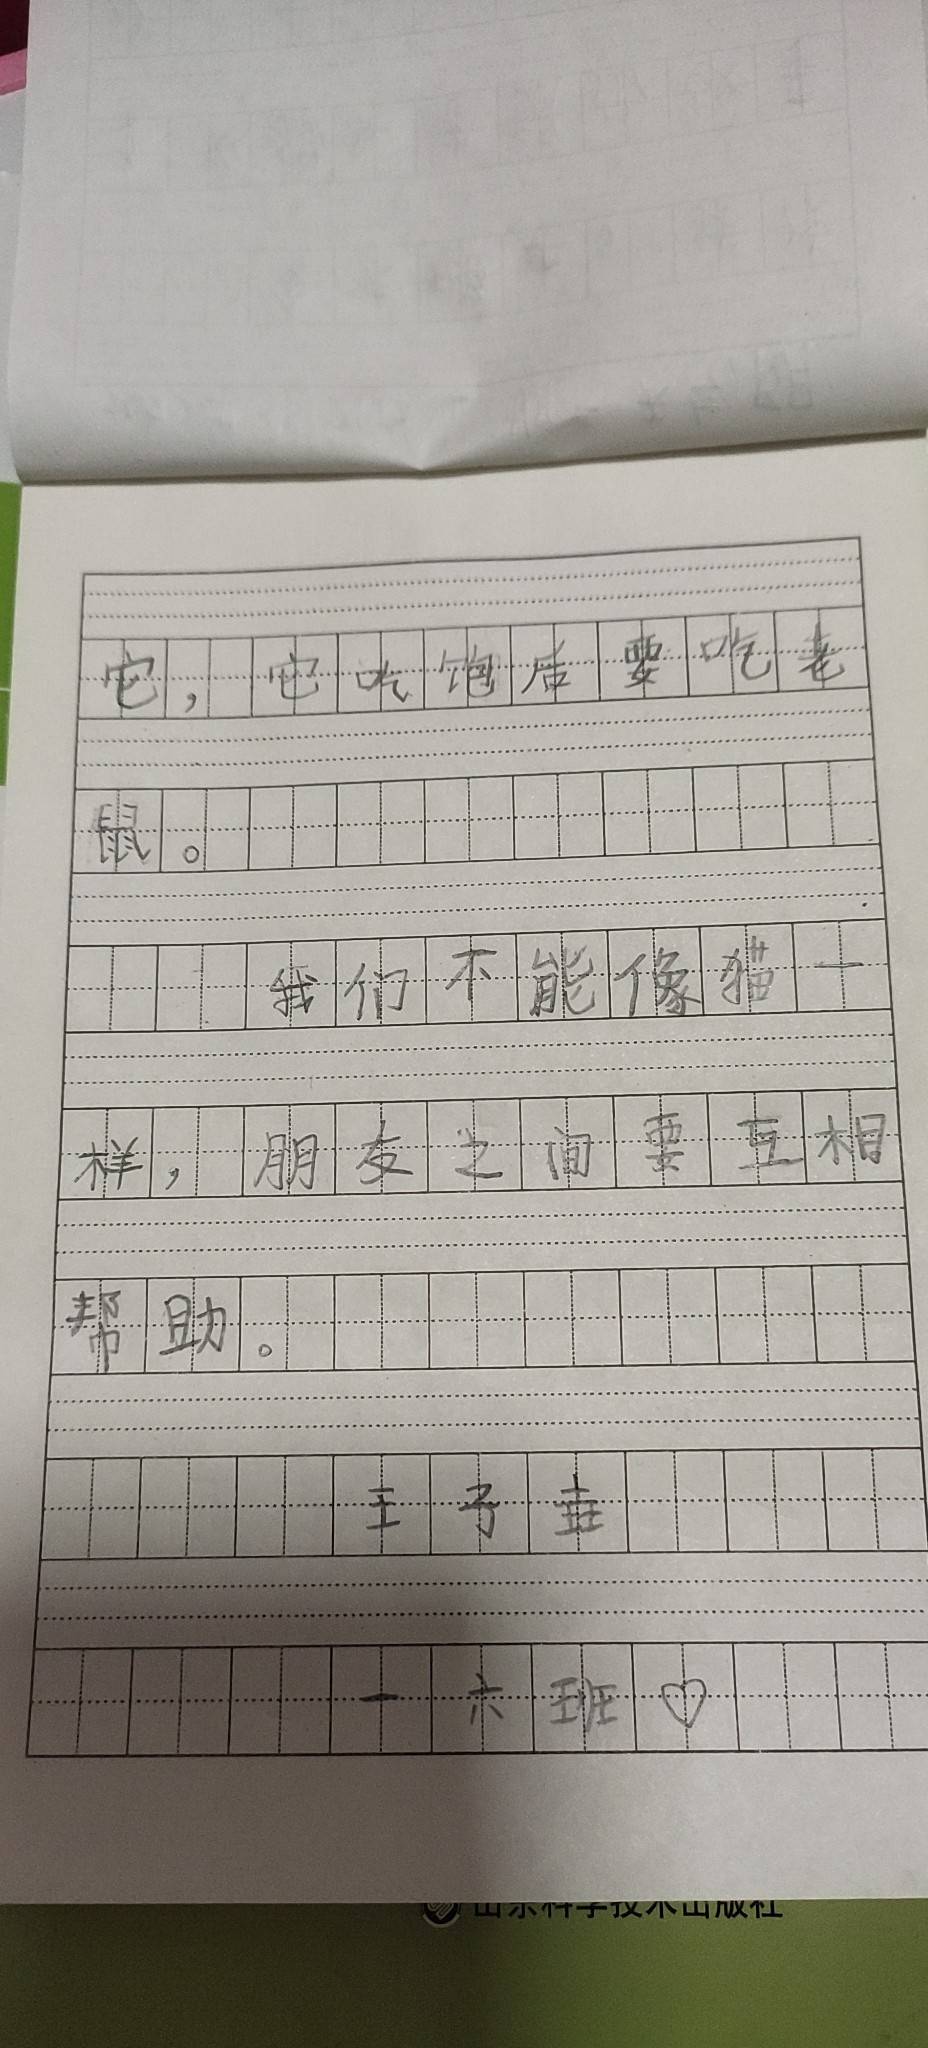 它，它吃饱后要吃老
鼠。
我们不能像猫一
样，朋友之间要互相
帮助。
王子垚
一六班♡
山东科学技术出版社